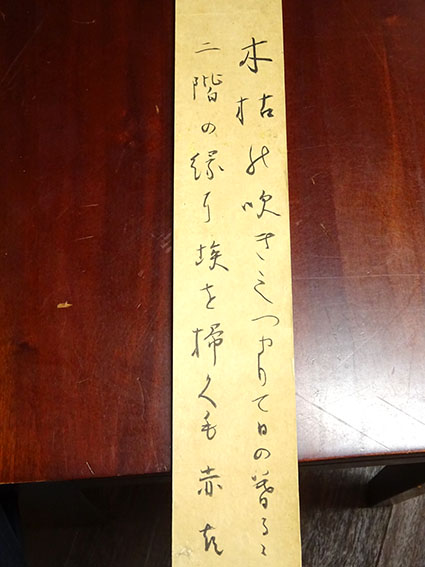 木枯の吹きしつまりて日の暮るゝ
二階の縁に埃を掃くも 赤彦